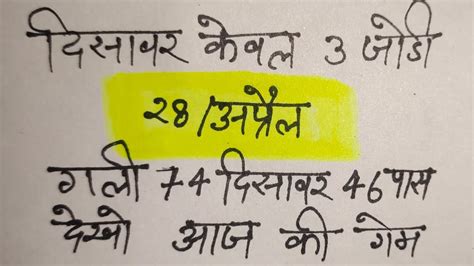 दिसावर केवल 3 जोडी
28/अप्रैल
गली 74 दिसावर 46 पास
देखो आज की गेम